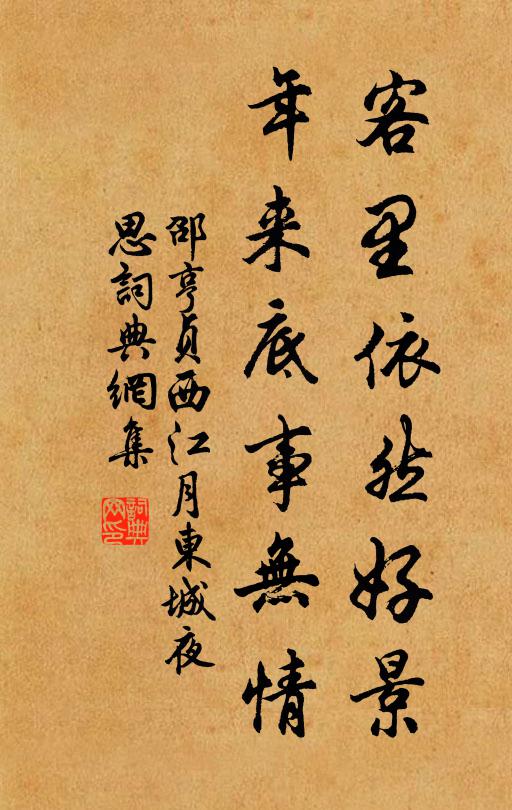 客里依然好景
年来底事無情
邵亨貞西江月東城夜
思詞典網集
詞典
网印